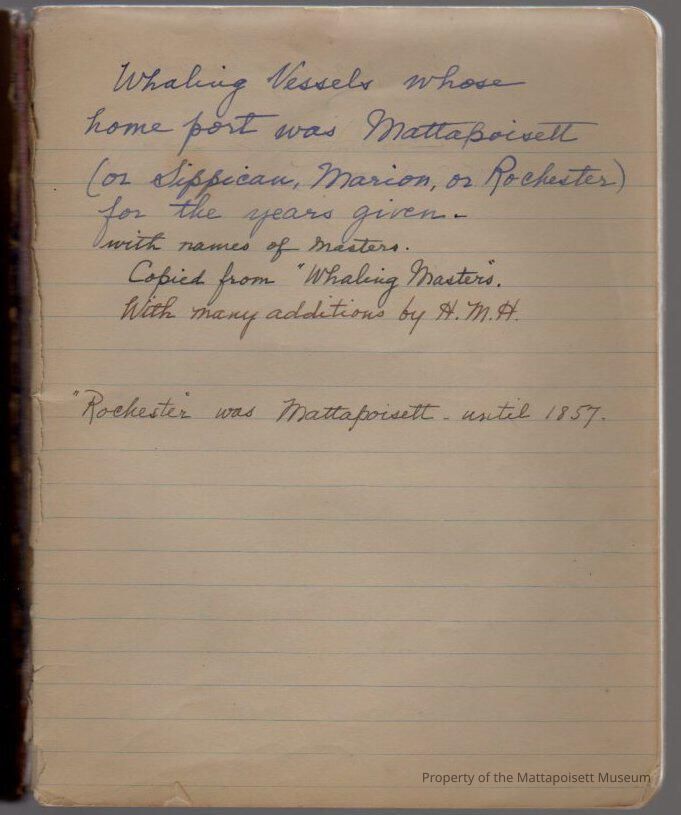 Whaling Vessels whose
home port was Mattapoisett
(or Sippican, Marion, or Rochester)
for the years given.
with names of masters.
Copied from "Whaling Masters".
With many additions by H.M.H.
"Rochester" was Mattapoisett - until 1857.
Property of the Mattapoisett Museum